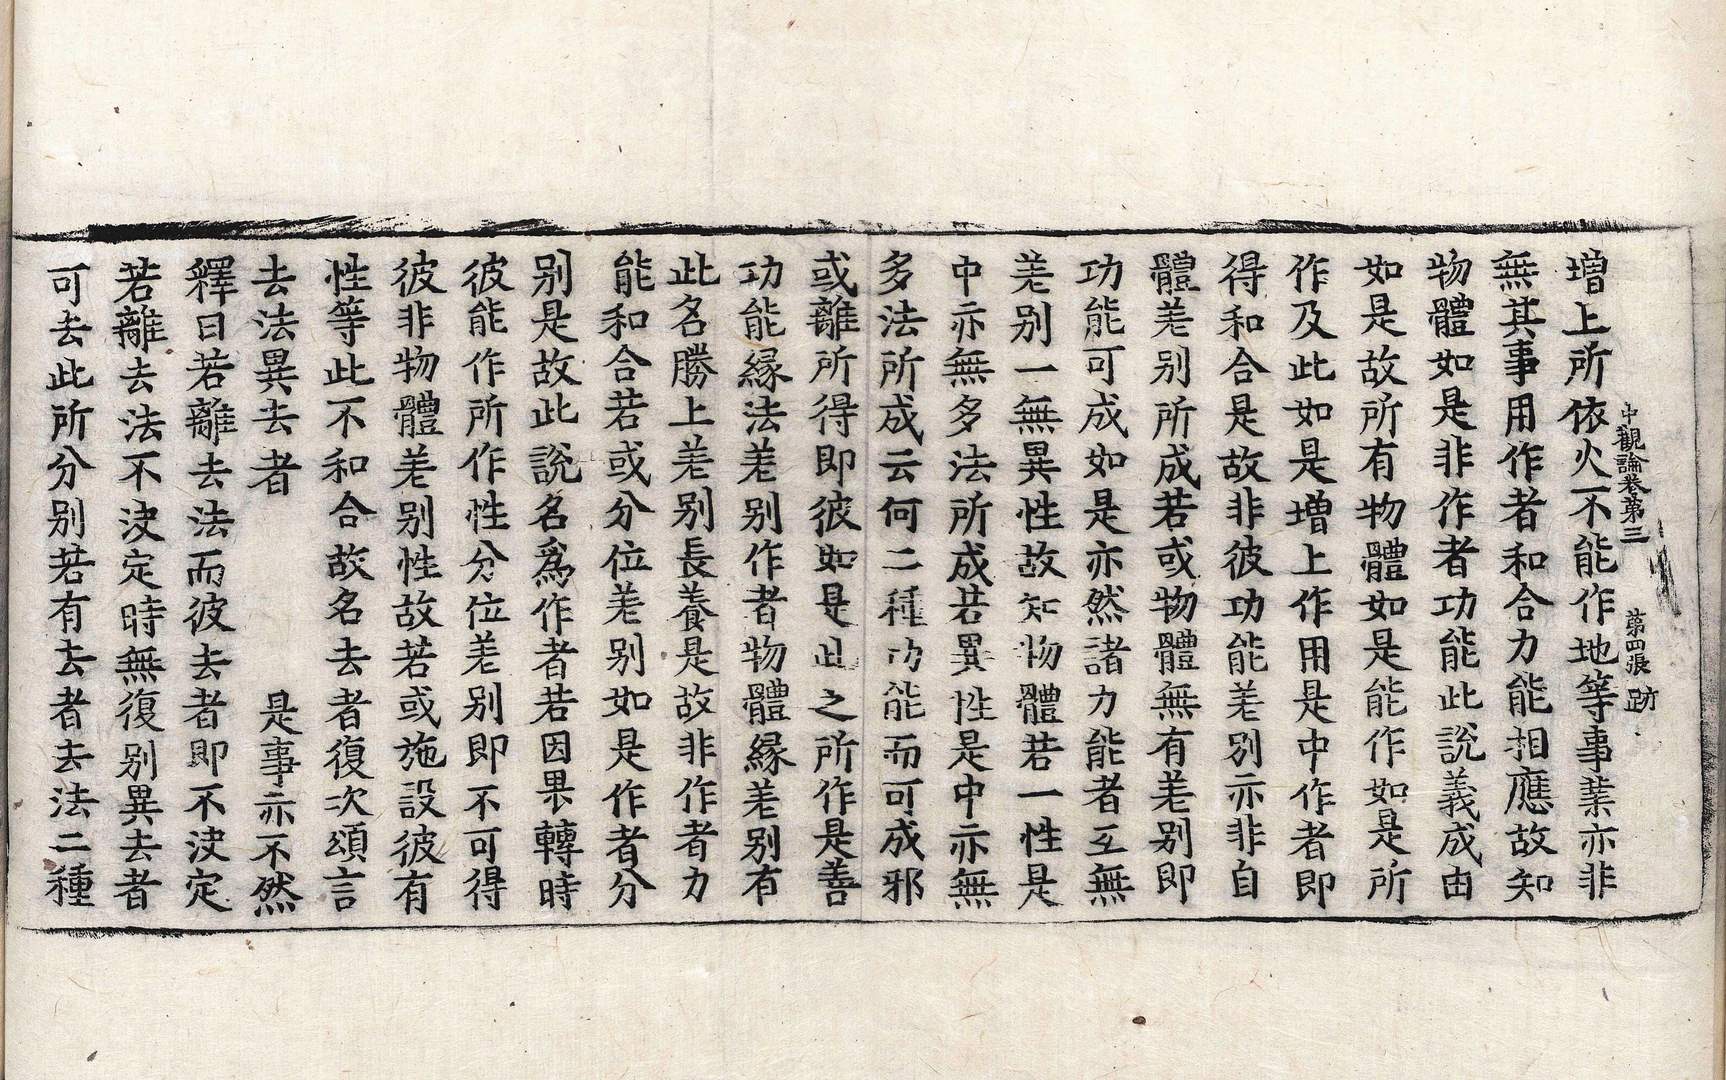 中觀論卷第三 第四張 跡
增上所依火不能作地等事業亦非
無其事用作者和合力能相應故知
物體如是非作者功能此說義成由
如是故所有物體如是能作如是所
作及此如是增上作用是中作者即
得和合是故非彼功能差別亦非自
體差别所成若或物體無有差别即
功能可成如是亦然諸力能者互無
差别一無異性故知物體若一性是
中亦無多法所成若異性是中亦無
多法所成云何二種功能而可成邪
或離所得即彼如是此之所作是善
功能緣法差别作者物體緣差别有
此名勝上差别長養是故非作者力
能和合若或分位差别如是作者分
别是故此說名爲作者若因果轉時
彼能作所作性分位差别即不可得
彼非物體差别性故若或施設彼有
性等此不和合故名去者復次頌言
去法異去者 是事亦不然
釋曰若離去法而彼去者即不決定
若離去法不決定時無復别異去者
可去此所分别若有去者去法二種